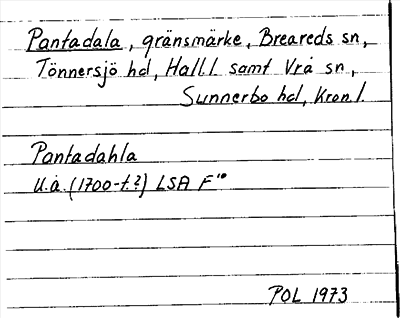 Pantadala, gränsmärke, Breareds sn,
Tönnersjö hd, Hall.l samt Vrå sn,
Sunnerbo hd, Kron.l
Pantadahla
U.å. (1700-t.?) LSA F"10
POL 1973